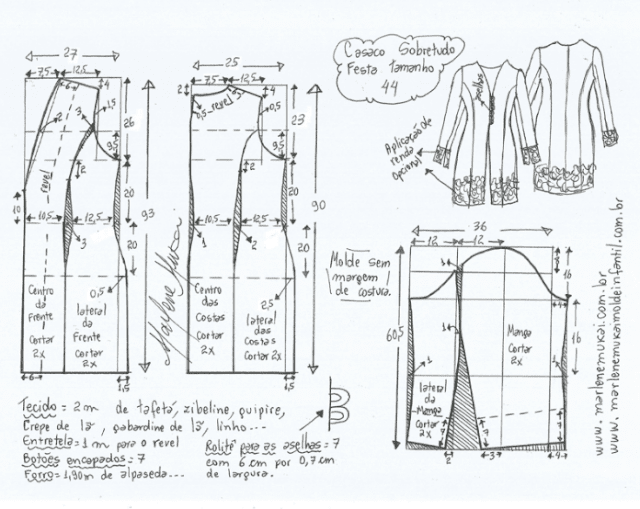 Casaco Sobretudo
Festa Tamanho
44
aselhas
Aplicação de
renda
opcional
27
7,5 12,5
6
4
1,5
3
2
26
9,5
revel
2
20
10
10,5 12,5
3
20
93
0,5
Centro
da
Frente
Cortar
2x
lateral
da
Frente
Cortar
2x
6
1,5
25
7,5 12,5
2
4
0,5
revel
0,5
23
9,5
2
20
10,5 12,5
1
2
20
90
2,5
Centro
das
Costas
Cortar
2x
lateral
das
Costas
Cortar 2x
1,5
Marlene Mukai
Molde sem
margem
de costura.
36
12 12
1
16
4
60,5
1
1
1
16
Manga
Cortar
2x
lateral
da
Manga
Cortar
2x
7
7
7
2
3
4
www.marlenemukai.com.br
www.marlenemukaimoldeinfantil.com.br
Tecido = 2 m de tafetá, zibeline, guipire,
Crepe de lã, gabardine de lã, linho...
Entretela = 1 m para o revel
Botões encapados = 7
Forro = 1,90m de alpaseda...
Rolitê para as aselhas = 7
com 6 cm por 0,7 cm
de largura.